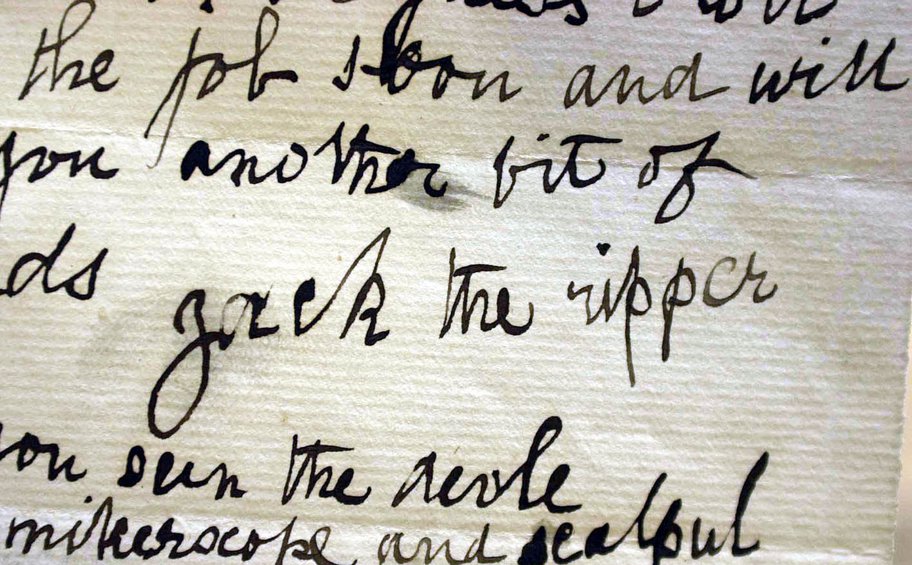 the job soon and will
you another bit of
ds Jack the ripper
ou seen the devle
mikerscope and scalpul